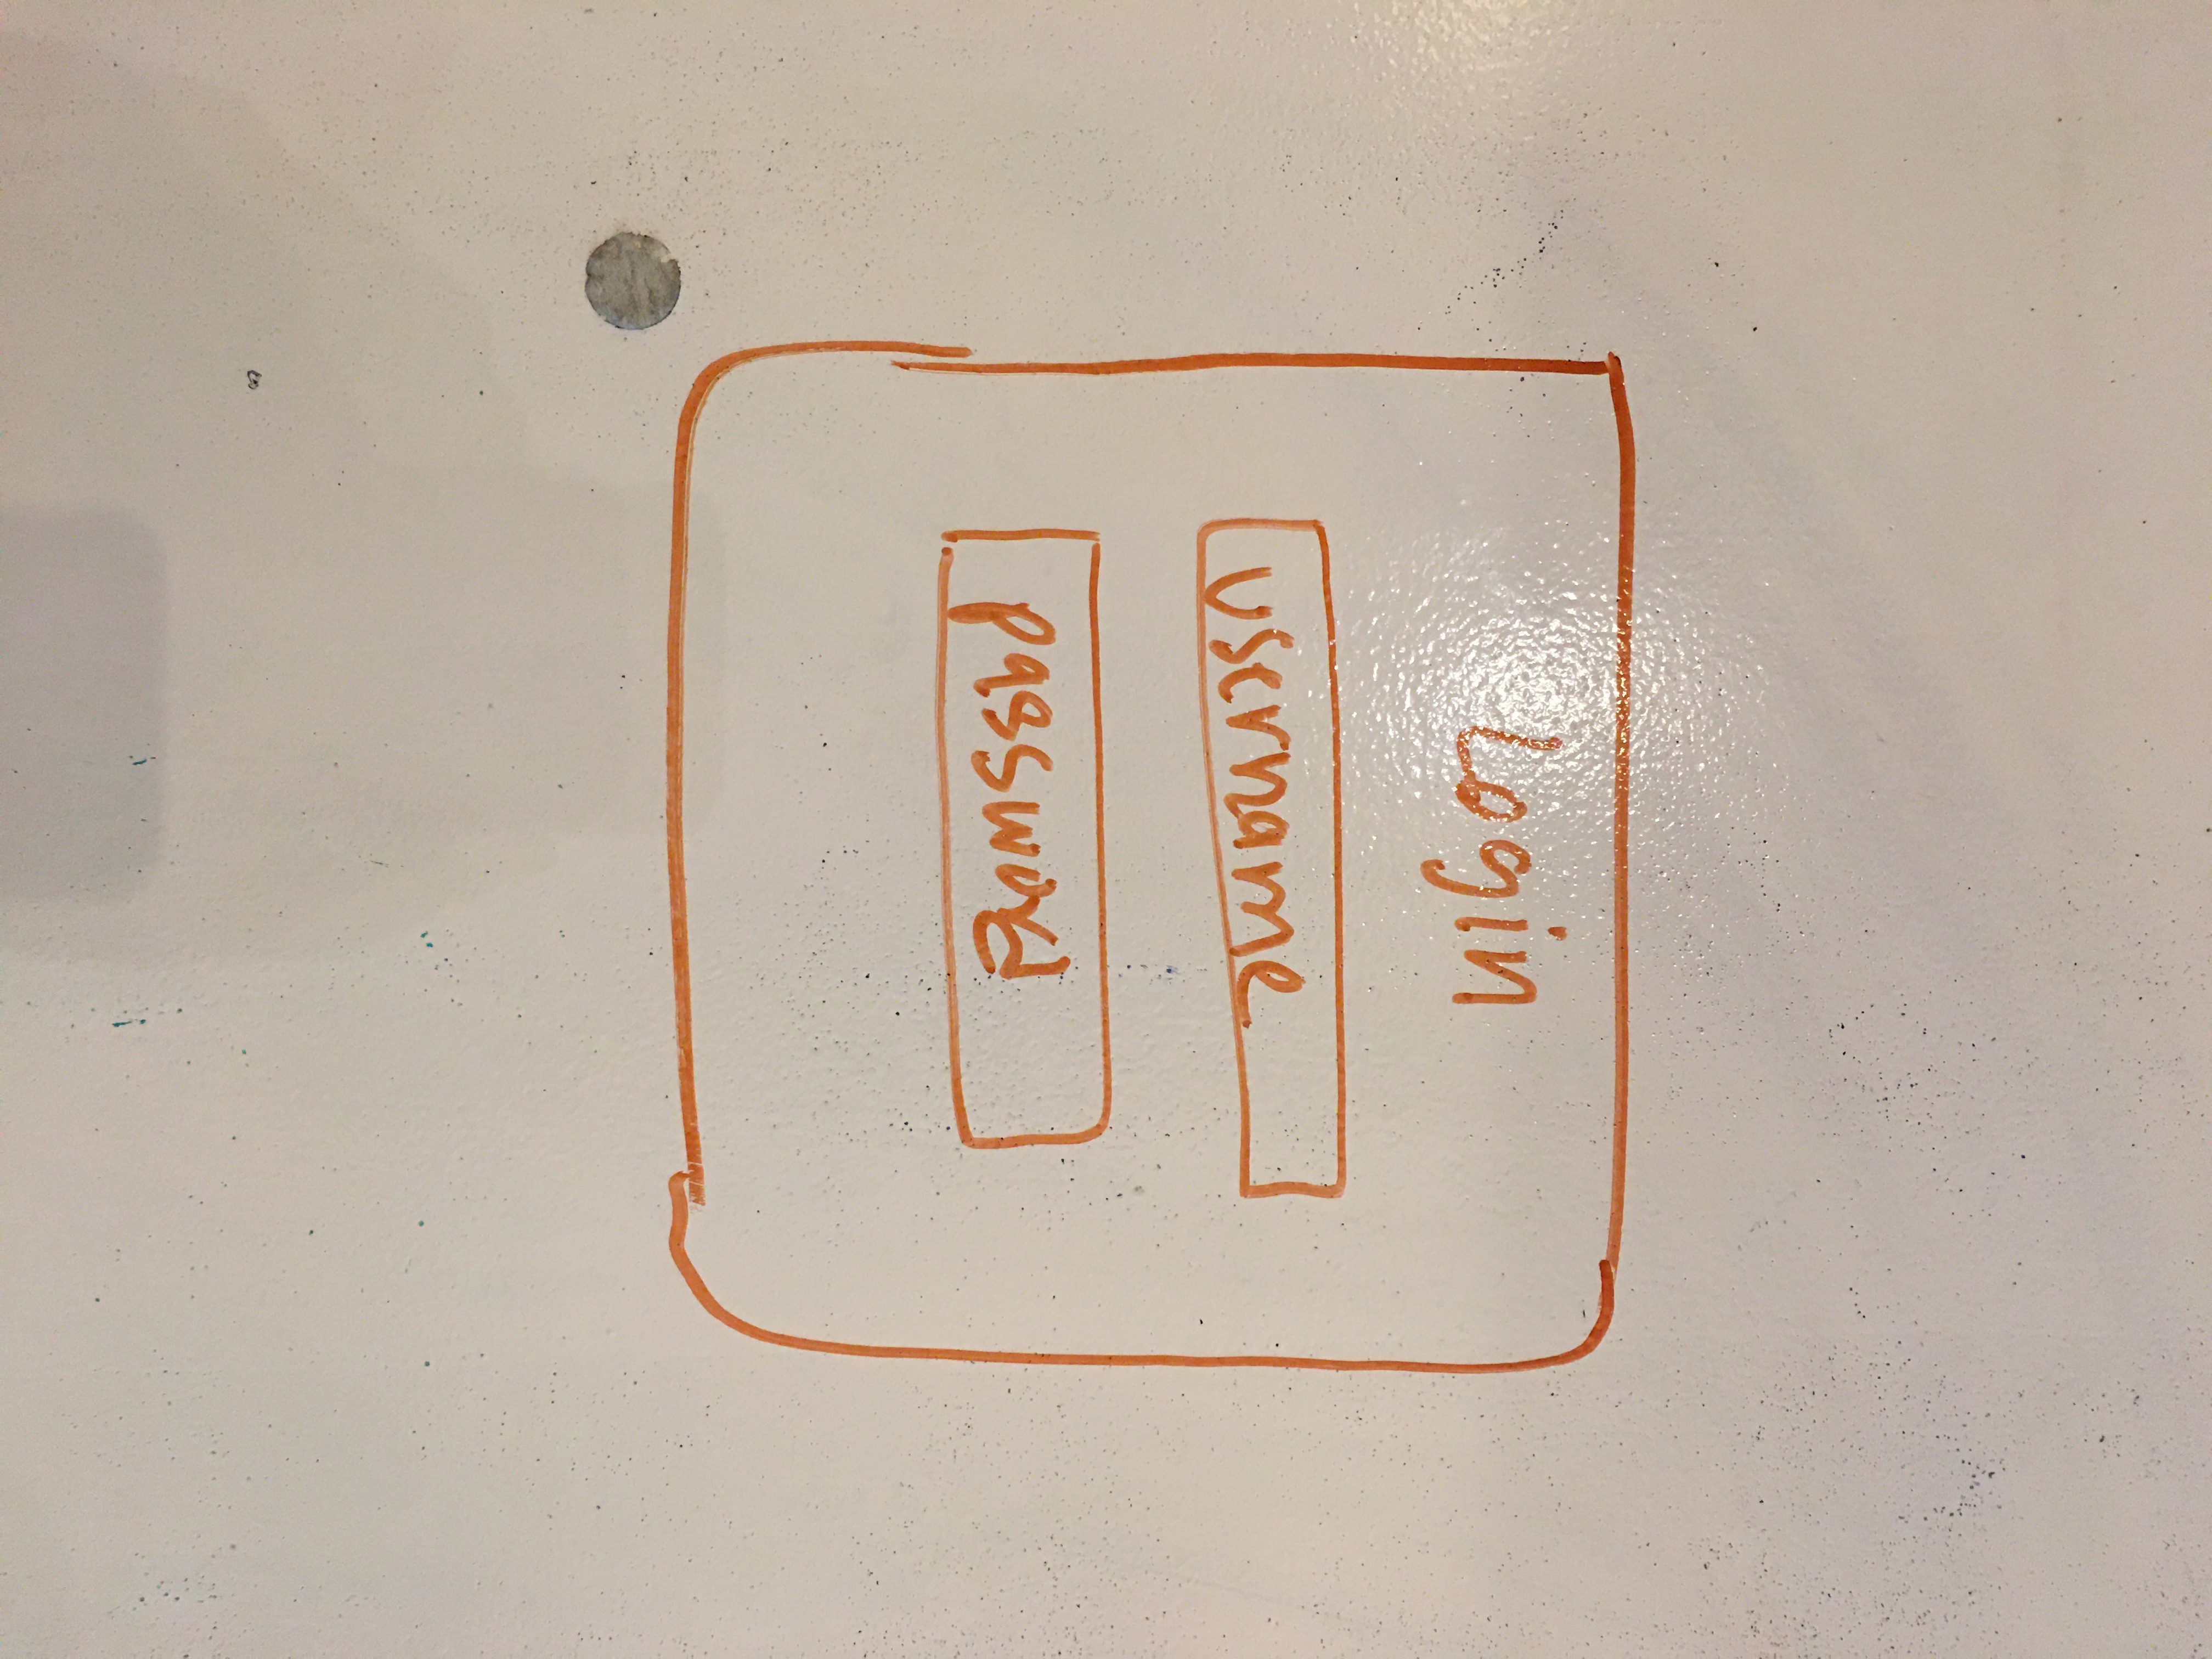 Login
username
password